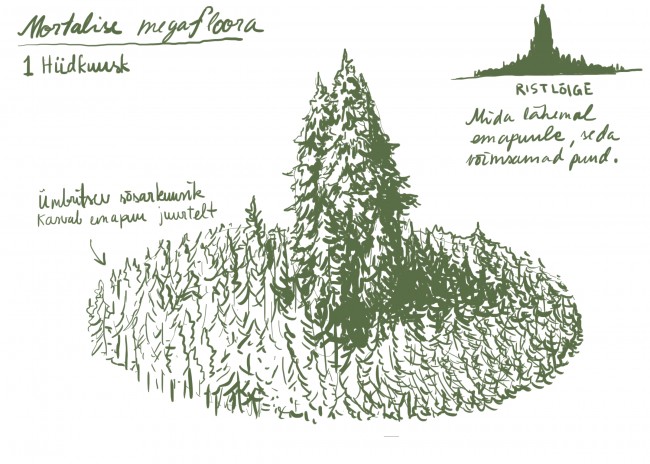 Mortalise megafloora
1 Hiidkuusk
RISTLÕIGE
Mida lähemal
emapuule, seda
võimsamad puud.
Ümbritsev sõsarkuusik
Kasvab emapuu juurtelt